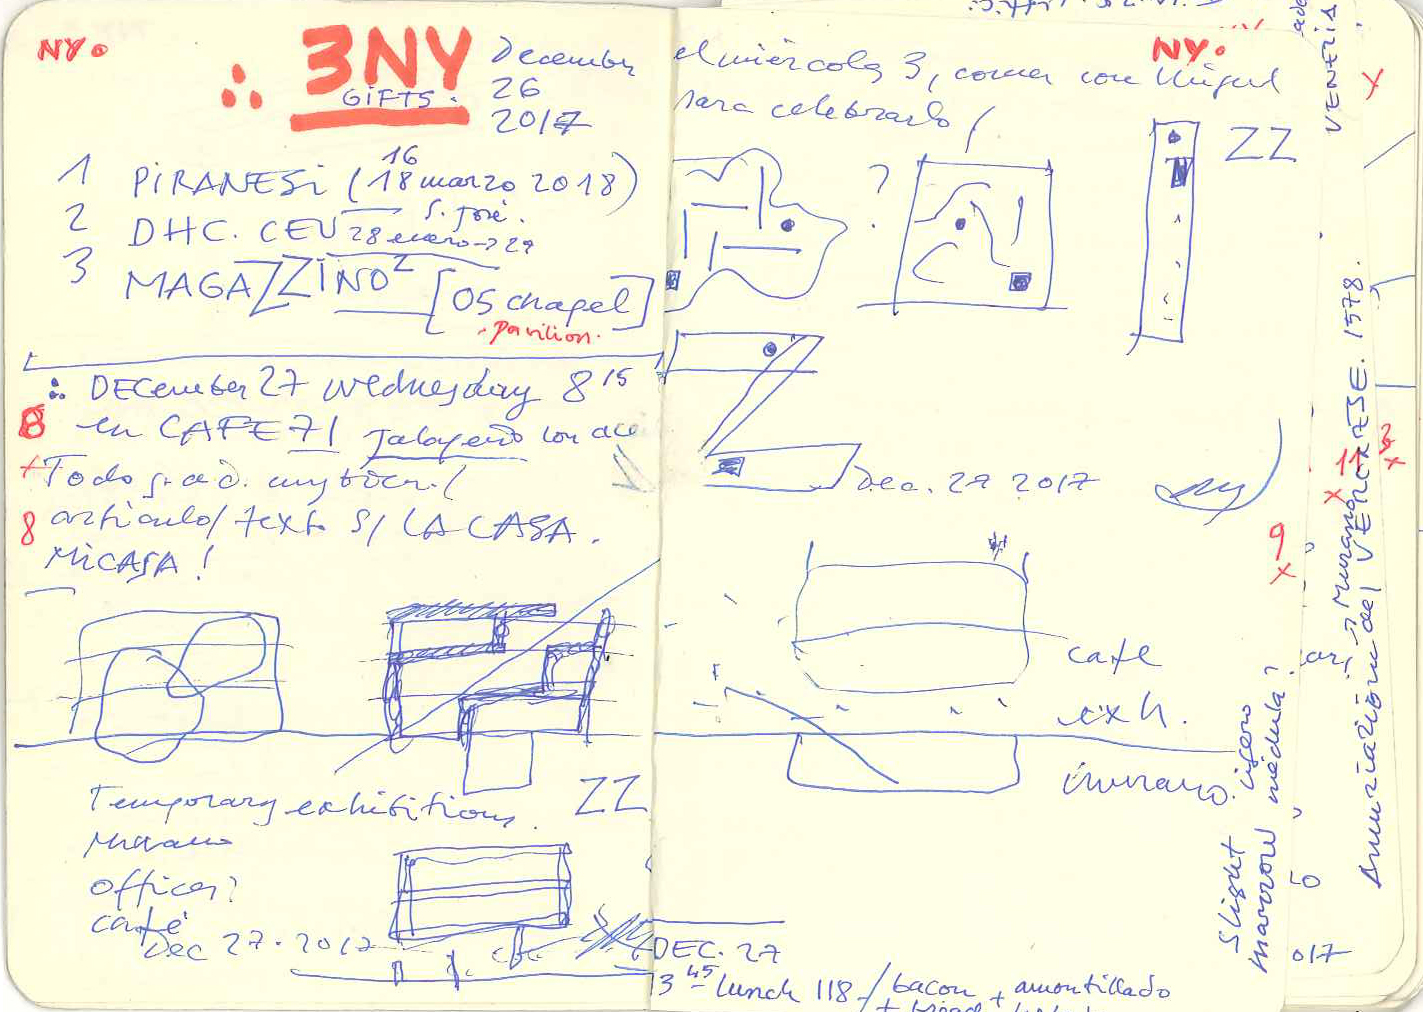 NY.
∴ 3NY
GIFTS.
December
26
2017
1 PIRANESI (18 marzo 2018)
16
2 DHC. CEU 28 enero → 29
S. José.
3 MAGAZZINO² [OS chapel]
pavilion.
∴ DECember 27 Wednesday 8 15
8 en CAFE 71 jalapeño con
+ Todo
8 artículo/texto S/ LA CASA.
MICASA!
Temporary exhibitions.
Murano
offices?
café
Dec 27. 2017
ZZ
NY.
el miércoles 3, comer con Miguel
para celebrarlo
?
ZZ
Dec. 27 2017
9
x
cafe
exh.
murano.
Slight ligero
marrow médula?
DEC. 27
3 45 lunch 118 / bacon + amontillado
+ bread
VENEZIA
x
3
x
11
x
→ Murano
Annunciazione del VERONESE. 1578.
LO
017